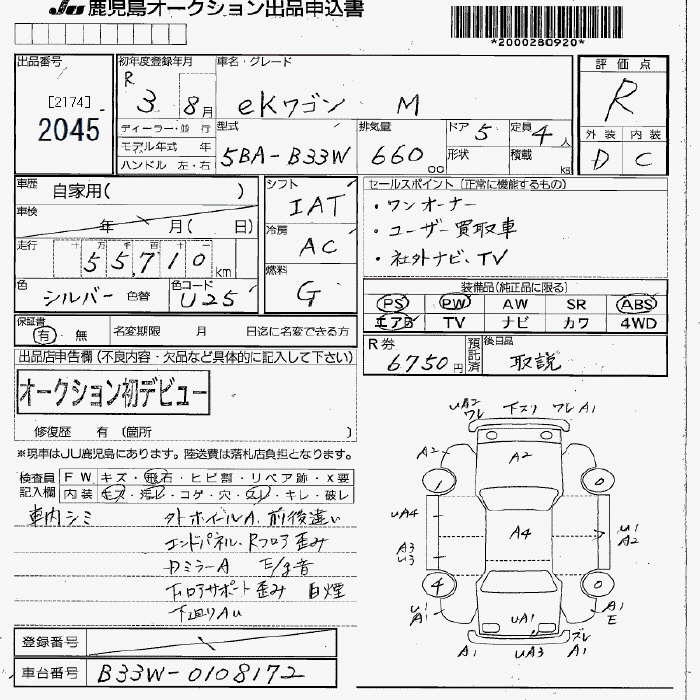 JU 鹿児島オークション出品申込書
*2000280920*
出品番号
[2174]
2045
初年度登録年月
R 3 8月
車名・グレード
eKワゴン M
評価点
R
外装 内装
D C
ディーラー・並行
モデル年式 年
ハンドル 左・右
型式
5BA-B33W
排気量
660 cc
ドア 5
形状
定員 4人
積載 kg
車歴 自家用( )
車検 年 月( 日)
走行 十 万 千 百 十 一
55,710 km
色 シルバー 色替
カラーNo. U25
シフト
IAT
冷房
AC
燃料
G
セールスポイント (正常に機能するもの)
・ワンオーナー
・ユーザー買取車
・社外ナビ、TV
装備品(純正品に限る)
PS PW AW SR ABS
エアB TV ナビ カワ 4WD
保証書
有 無
名変期限 月 日迄に名変できる方
R券
6750円
預託済
後日品
取説
出品店申告欄 (不良内容・欠品など具体的に記入して下さい)
オークション初デビュー
修復歴 有 (箇所 )
※現車はJU鹿児島にあります。陸送費は落札店負担となります。
検査員記入欄
FW キズ・飛石・ヒビ割・リペア跡・X要
内装 キズ・汚レ・コゲ・穴・スレ・キレ・破レ
車内シミ
タイホイールA、前後違い
エンドパネル、Rフロア歪み
DミラーA E/g音
Fロアサポート歪み 白煙
下廻りAu
UA2
ワレ
下スリ ワレ A1
A2
A2
1
0
UA4
A4
U1
A2
A3
U3
4
0
U1
A1
UA1
A1
E
A1
UA3
ズレ
A1
登録番号
車台番号 B33W-0108172